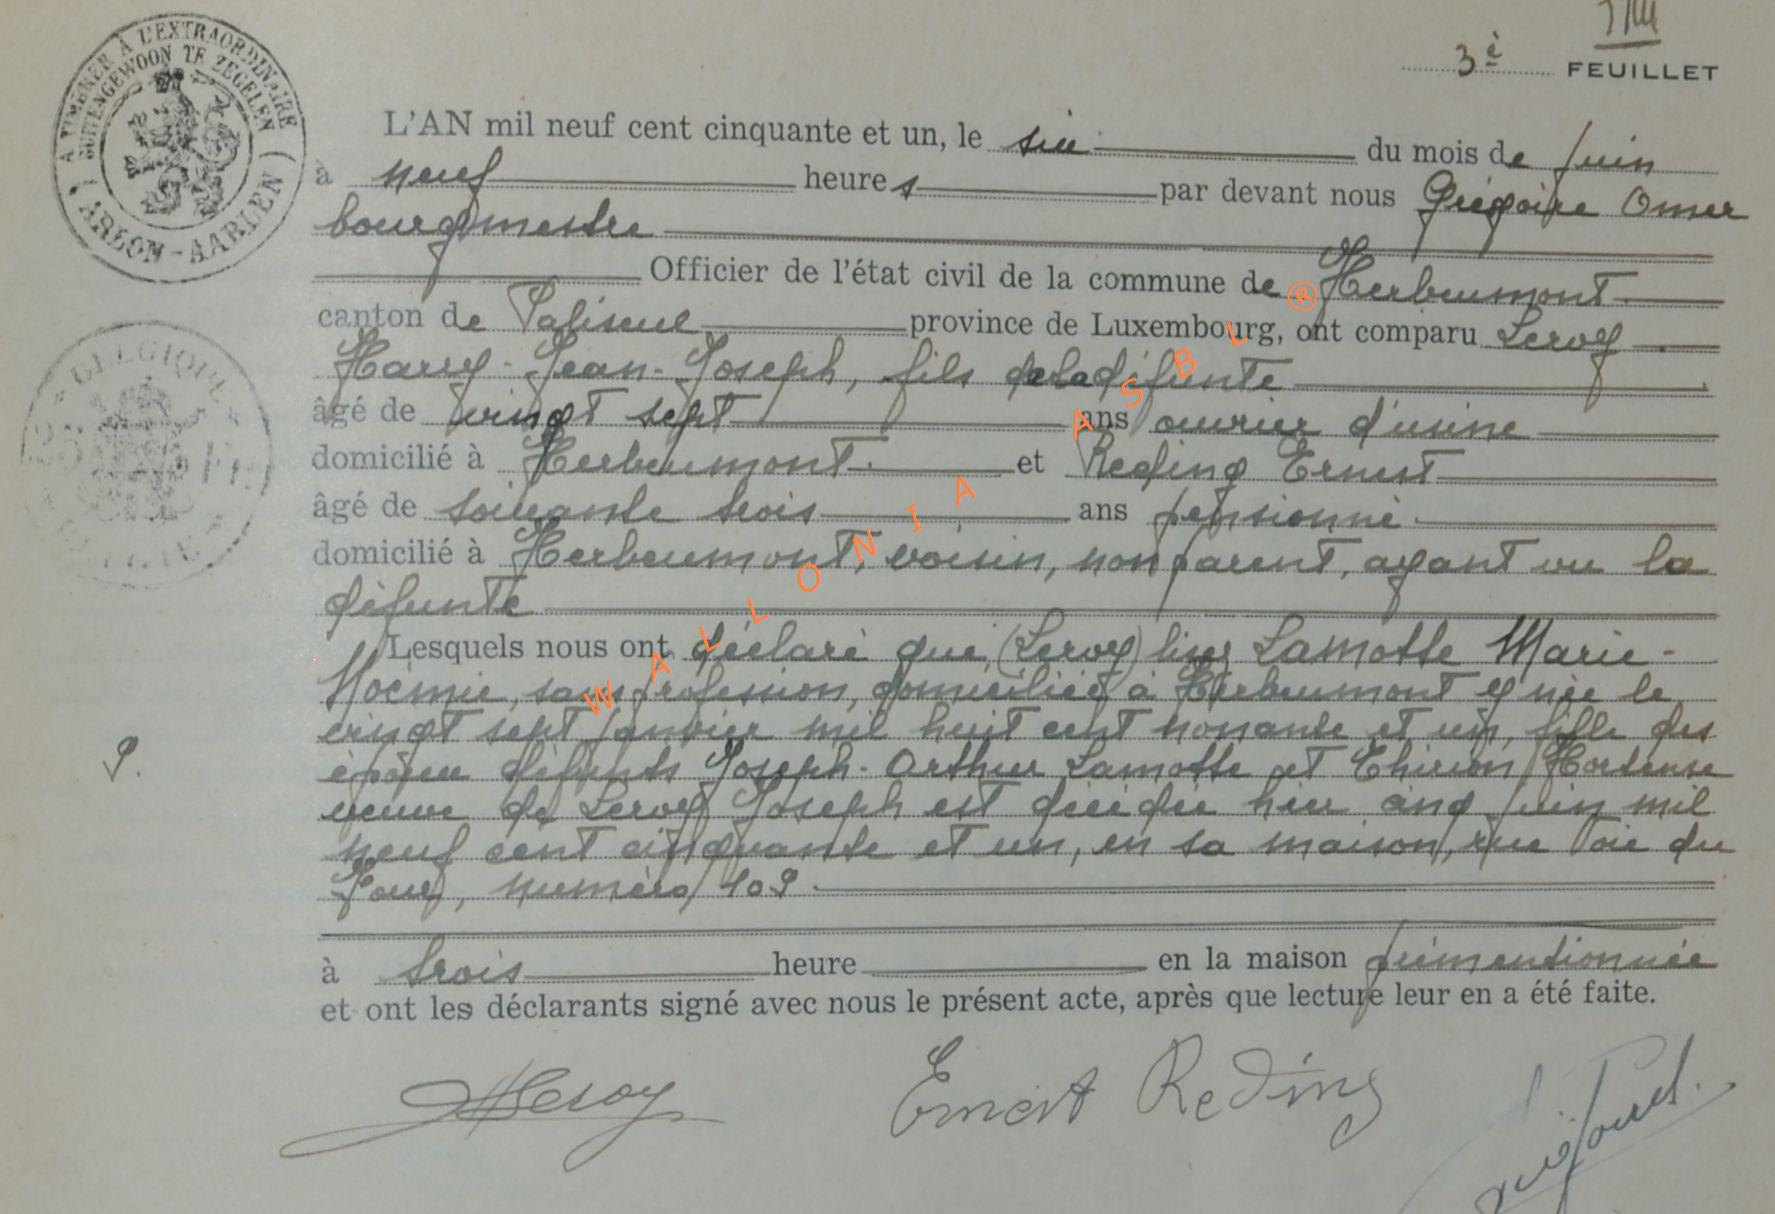 À TIMBRER À L'EXTRAORDINAIRE
BUITENGEWOON TE ZEGELEN
( ARLON - AARLEN )
BELGIQUE
3è FEUILLET
L'AN mil neuf cent cinquante et un, le six du mois de juin
à neuf heures par devant nous Grégoire Omer
bourgmestre
Officier de l'état civil de la commune de Herbeumont
canton de Paliseul province de Luxembourg, ont comparu Leroy
Harry-Jean-Joseph, fils de la défunte
âgé de vingt sept ans ouvrier d'usine
domicilié à Herbeumont et Reding Ernest
âgé de soixante trois ans pensionné
domicilié à Herbeumont, voisin, non parent, ayant vu la
défunte
Lesquels nous ont déclaré que, (Leroy) Lamotte Marie-
Noémie, sans profession, domiciliée à Herbeumont y née le
vingt sept janvier mil huit cent nonante et un, fille des
époux défunts Joseph-Arthur Lamotte et Thirion Hortense
veuve de Leroy Joseph est décédée hier cinq juin mil
neuf cent cinquante et un, en sa maison, rue Voie du
Four, numéro 109
9.
à trois heure en la maison prémentionnée
et ont les déclarants signé avec nous le présent acte, après que lecture leur en a été faite.
HLeroy
Ernest Reding
WALLONIA ASBL ®